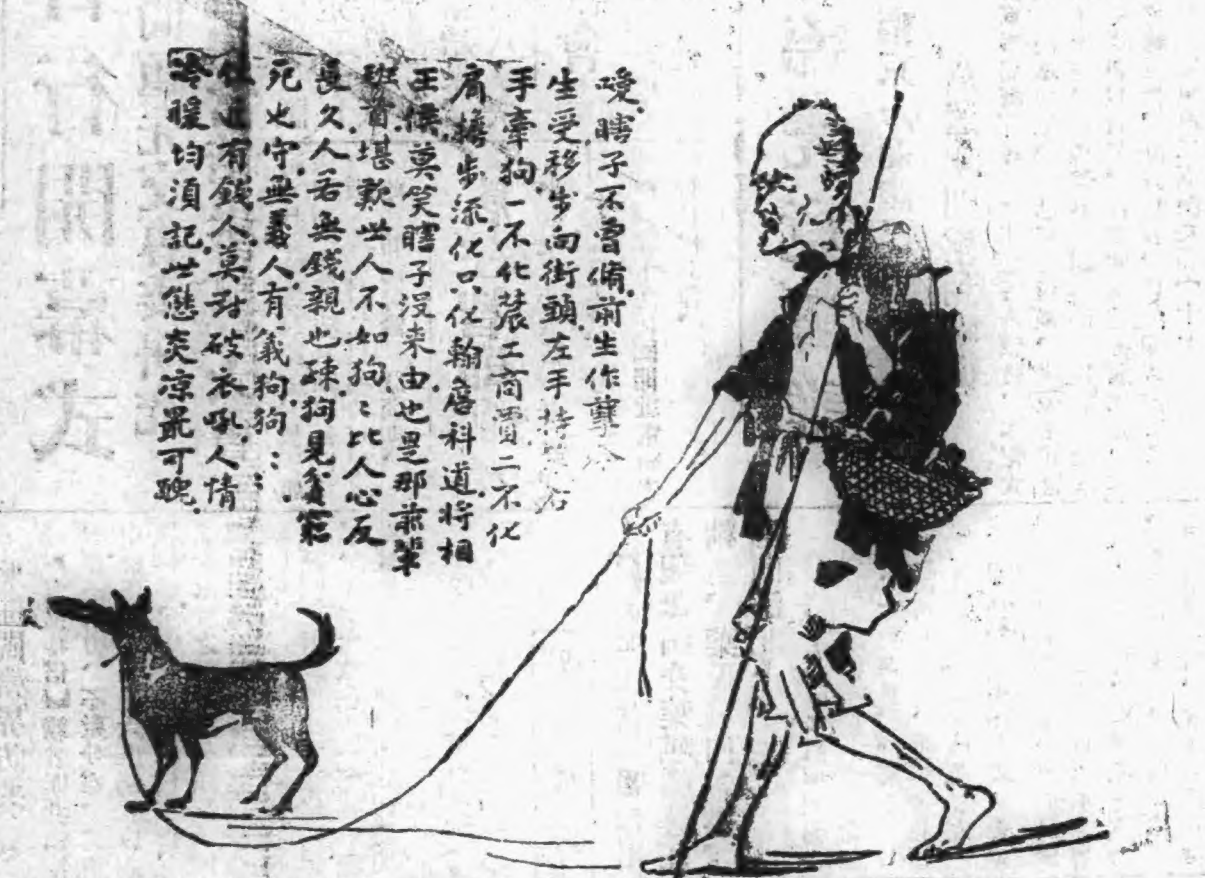 嗳瞎子不曾脩前生作孽今
生受移步向街頭左手持 右
手牽狗一不化農工商賈二不化
肩挑步
流化只化翰詹科道将相
王侯莫笑瞎子没来由也是那前輩
班首堪歎世人不如狗〻比人心反
長久人若無錢親也疎狗見貧窮
死也守無義人有義狗狗〻〻
仕途有錢人莫對破衣吼人情
冷暖均須記世態炎凉最可醜